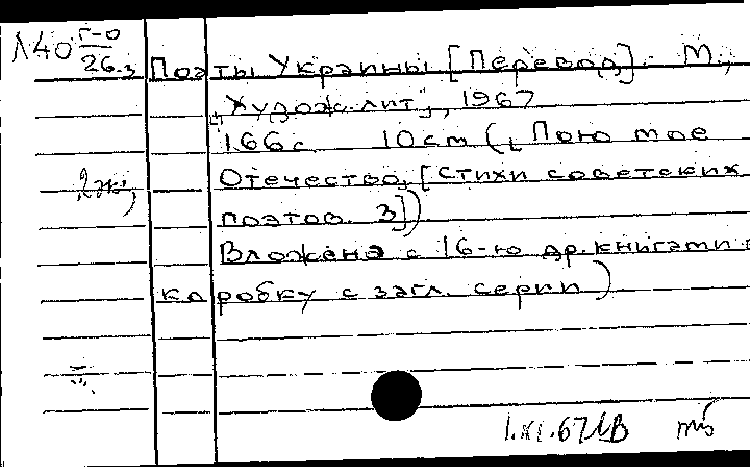 Л40 Г-0
26.3 Поэты Украины [Перевод]. М.,
„Худож. лит", 1967
166 с. 10 см ([Пою мое
2 эк; Отечество, [Стихи советских
поэтов. 3])
Вложена с 16-ю др. книгами в
коробку с загл. серии)
1.XI.67